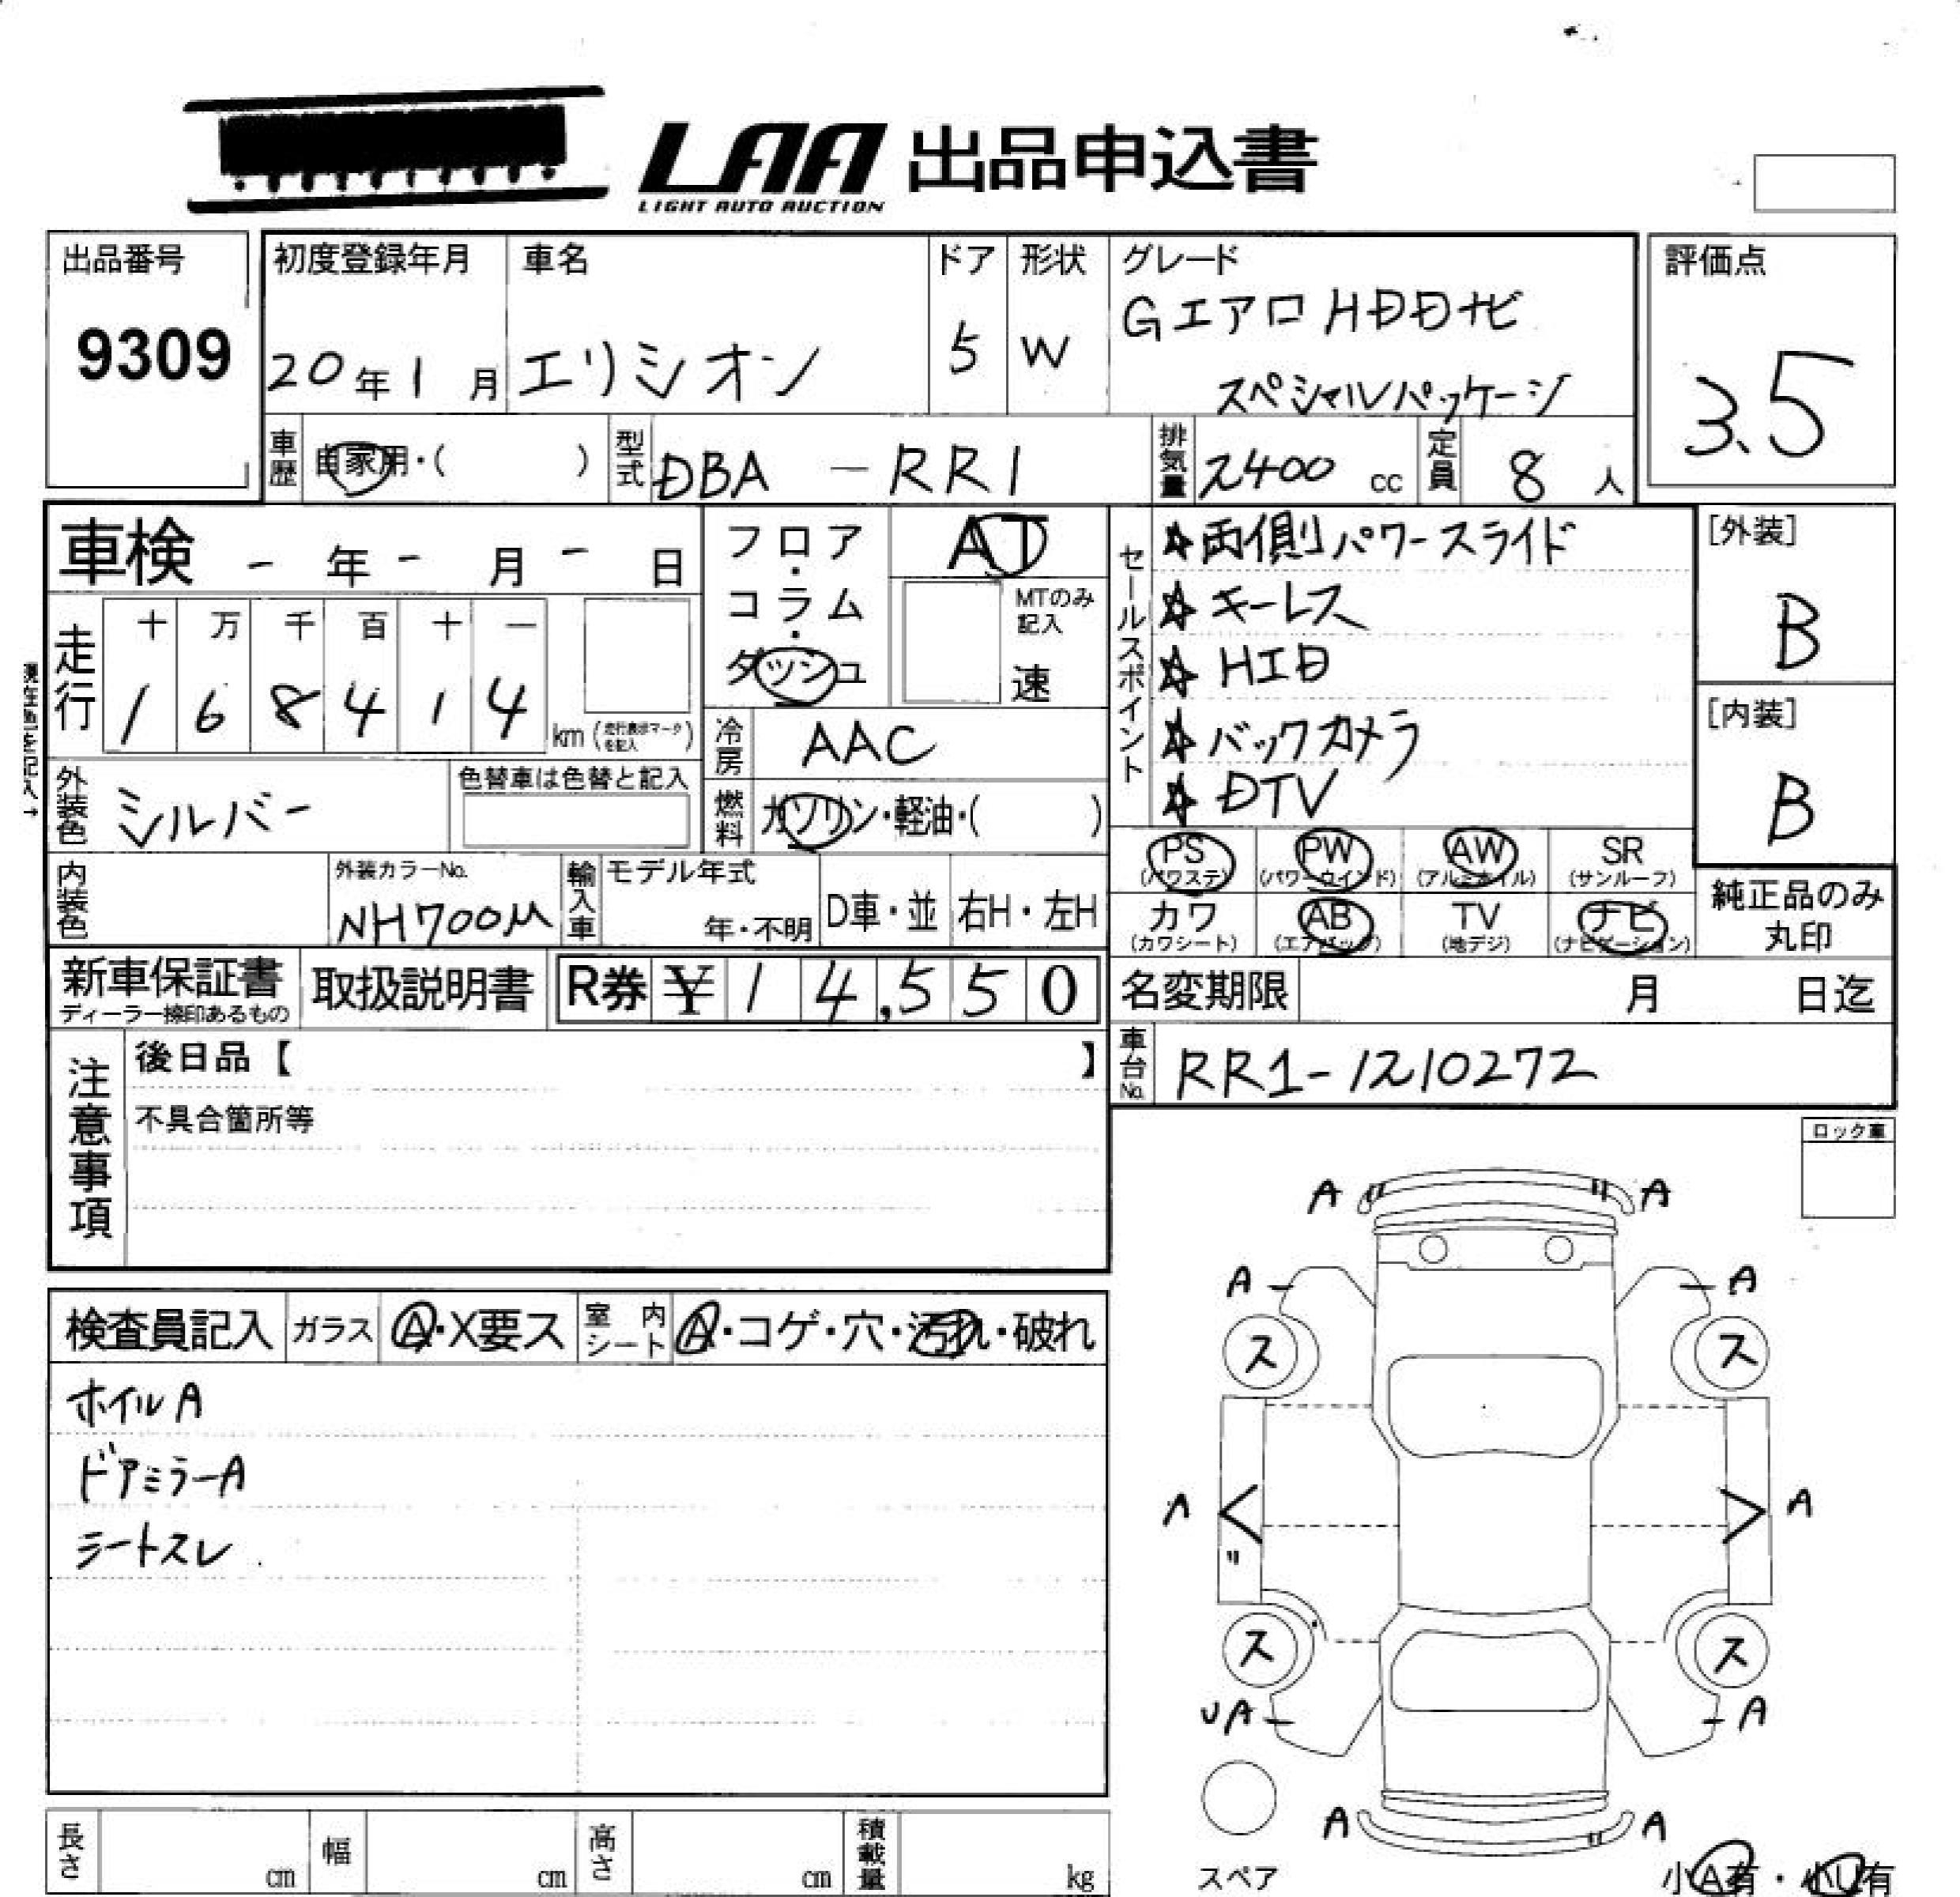 LAA 出品申込書
LIGHT AUTO AUCTION
出品番号
9309
初度登録年月
20年1月
車名
エリシオン
ドア
5
形状
W
グレード
Gエアロ HDDナビ
スペシャルパッケージ
評価点
3.5
車歴
自家用・( )
型式
DBA - RR1
排気量
2400 cc
定員
8 人
車検 - 年 - 月 - 日
フロア・コラム・ダッシュ
AT
MTのみ記入
速
セールスポイント
☆両側パワースライド
☆キーレス
☆HID
☆バックカメラ
☆DTV
[外装]
B
[内装]
B
走行
十 万 千 百 十 一
1 6 8 4 1 4 km (走行表示マークを記入)
現在色を記入→
冷房
AAC
外装色
シルバー
色替車は色替と記入
燃料
ガソリン・軽油・( )
内装色
外装カラーNo.
NH700M
輸入車
モデル年式
年・不明
D車・並
右H・左H
PS (パワステ)
PW (パワーウインド)
AW (アルミホイル)
SR (サンルーフ)
カワ (カワシート)
AB (エアバッグ)
TV (地デジ)
ナビ (ナビゲーション)
純正品のみ
丸印
新車保証書
ディーラー捺印あるもの
取扱説明書
R券 ¥ 14,550
名変期限 月 日迄
車台No.
RR1-1210272
注意事項
後日品【 】
不具合箇所等
ロック車
検査員記入
ガラス
A・X要ス
室内シート
A・コゲ・穴・汚れ・破れ
ホイルA
ドアミラーA
シートスレ
A A
A A
ス ス
A A
ス ス
UA A
A A
スペア
小A有・小U有
長さ cm
幅 cm
高さ cm
積載量 kg